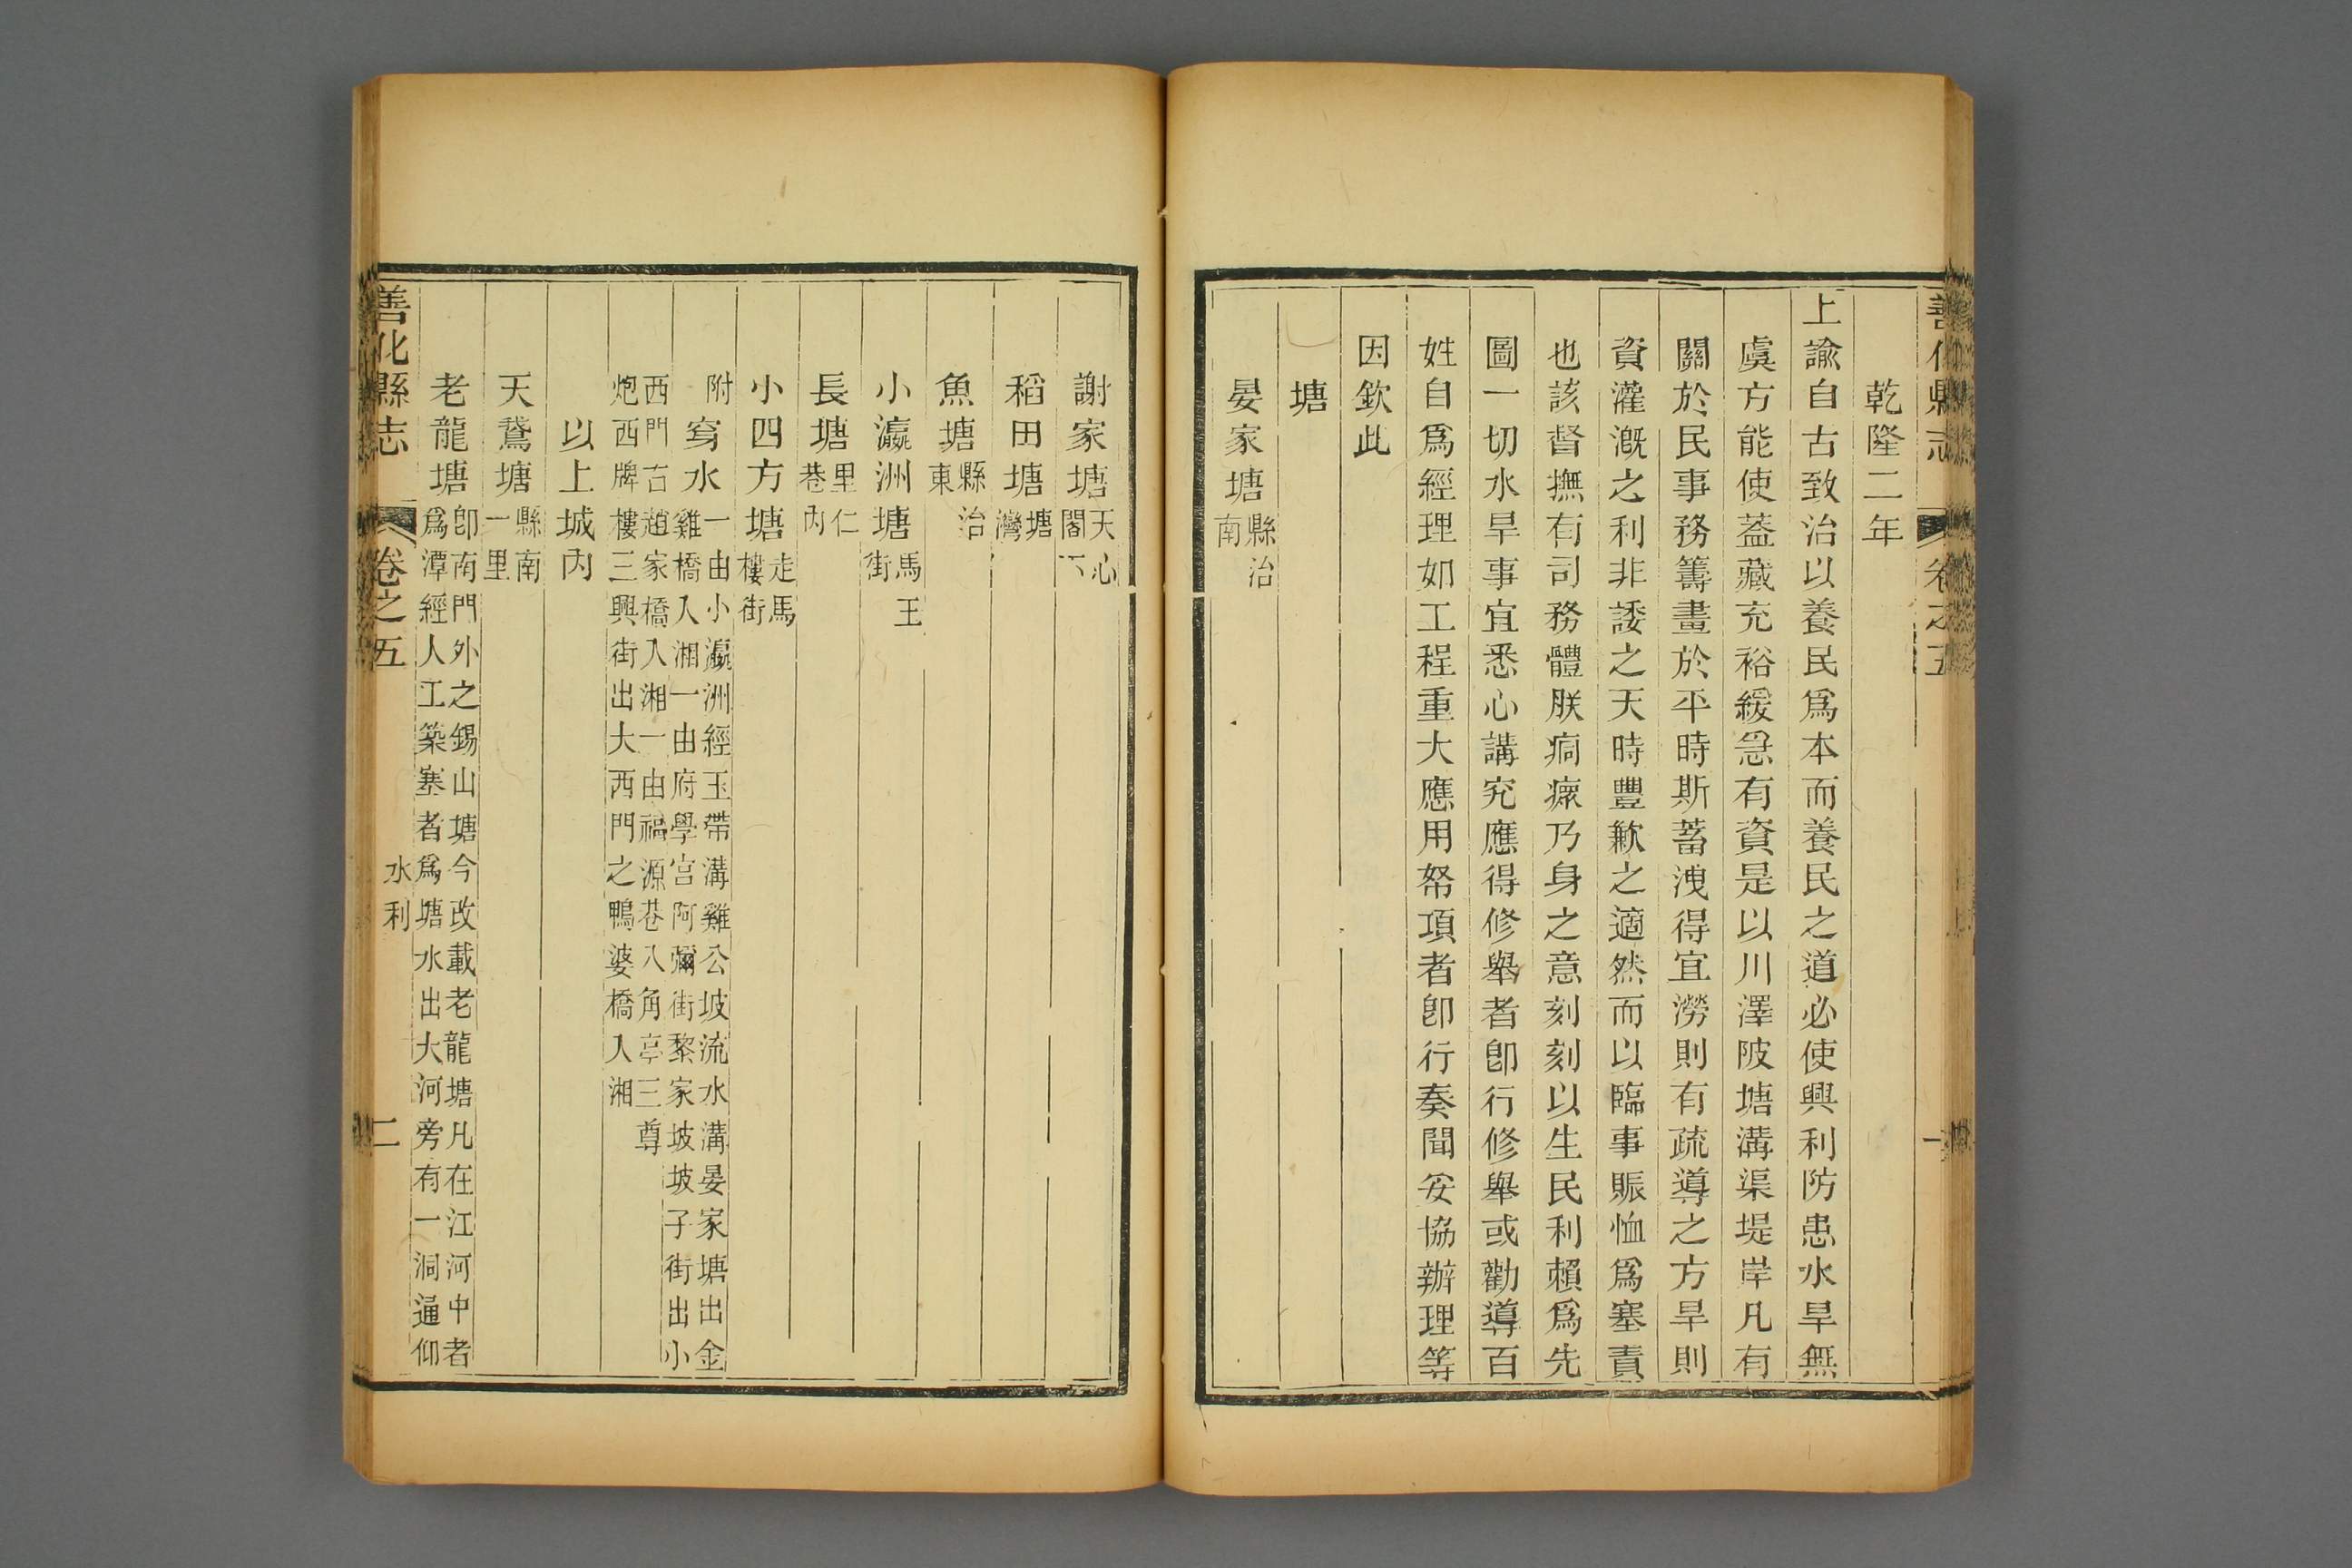 善化縣志 卷之五 一
乾隆二年
上諭自古致治以養民爲本而養民之道必使興利防患水旱無
虞方能使葢藏充裕緩急有資是以川澤陂塘溝渠堤岸凡有
關於民事務籌畫於平時斯蓄洩得宜澇則有疏導之方旱則
資灌漑之利非諉之天時豐歉之適然而以臨事賑恤爲塞責
也該督撫有司務體朕痌瘝乃身之意刻刻以生民利賴爲先
圖一切水旱事宜悉心講究應得修舉者卽行修舉或勸導百
姓自爲經理如工程重大應用帑項者卽行奏聞妥協辦理等
因欽此
塘
晏家塘縣治
南
謝家塘天心
閣下
稻田塘塘
灣
魚塘縣治
東
小瀛洲塘馬王
街
長塘里仁
巷內
小四方塘走馬
樓街
附窵水一由小瀛洲經玉帶溝雞公坡流水溝晏家塘出金
雞橋入湘一由府學宮阿彌街黎家坡坡子街出小
西門古趙家橋入湘一由福源巷八角亭三尊
炮西牌樓三興街出大西門之鴨婆橋入湘
以上城內
天鵞塘縣南
一里
老龍塘卽南門外之錫山塘今改載老龍塘凡在江河中者
爲潭經人工築塞者爲塘水出大河旁有一洞通仰
善化縣志 卷之五 水利 二